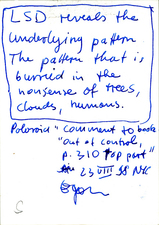 LSD reveals the
underlying pattern
The pattern that is
burried in the
nonsense of trees,
clouds, humans.
Poloroid "Comment to book
"Out of control,
p. 310 top part"
23 VIII 98 NYC